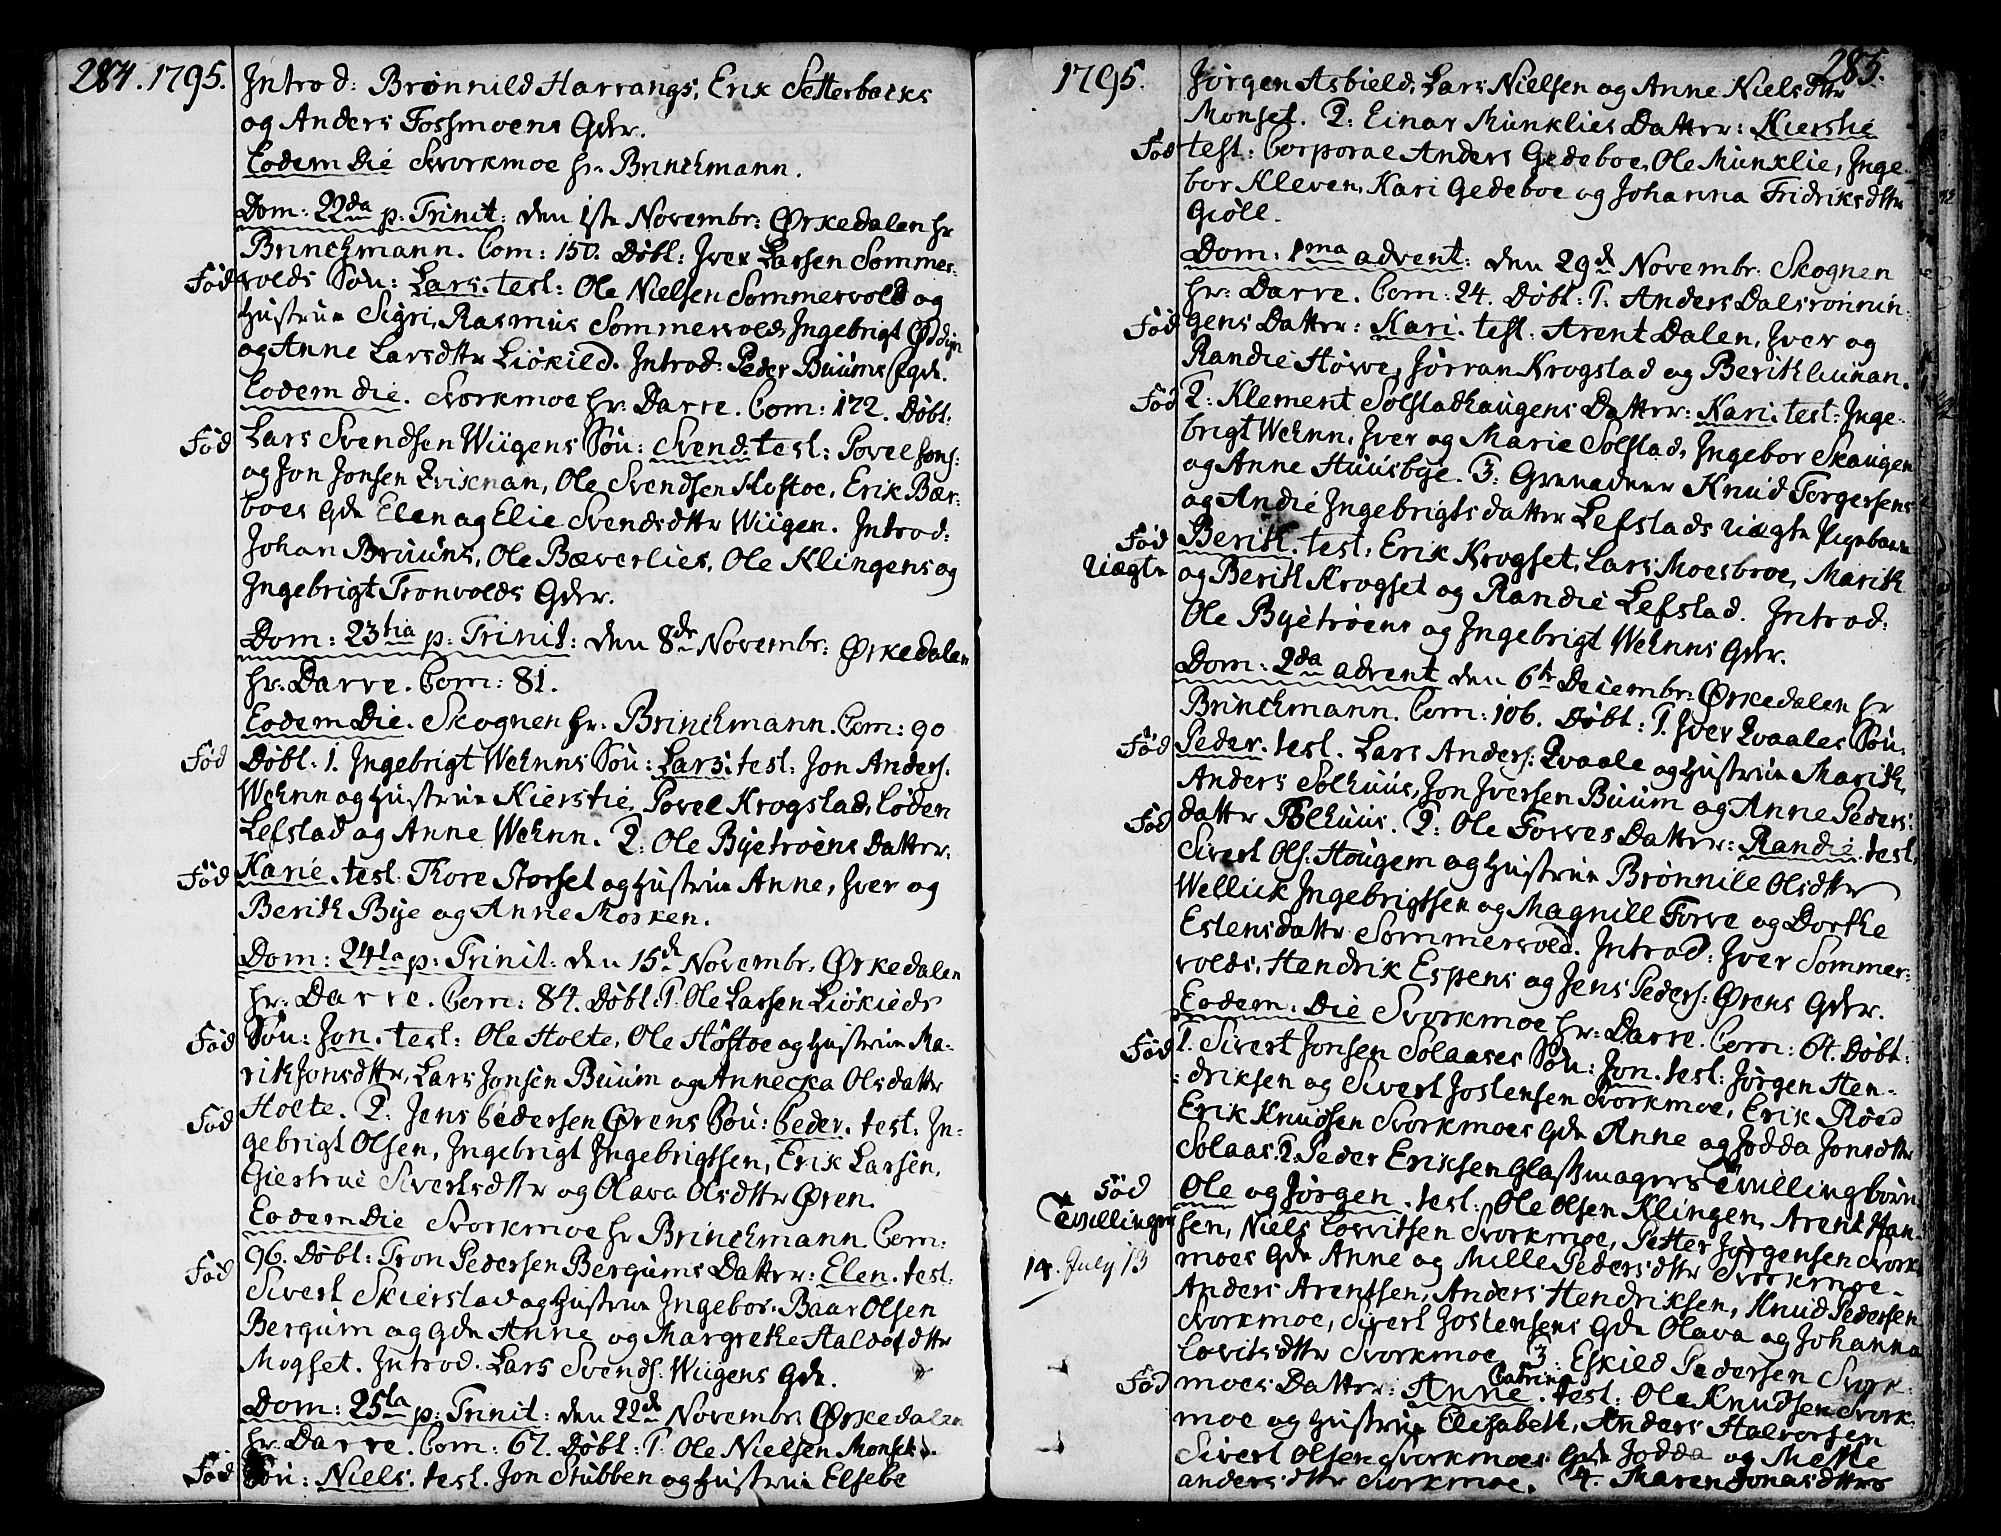 284. 1795.
Introd: Brønnild Harrangs, Erik Setterbacks
og Anders Fossmoens Gdr.
Eodem Die Svorkmoe hr. Brinchmann.
Dom: 22da p: Trinit: den 1ste Novembr: Ørkedalen hr
Brinchmann. Com: 150. Døbl: Iver Larsen Sommer-
Fød volds Søn: Lars. test: Ole Nielsen Sommervold og
Hustrue Sigri, Rasmus Sommervold, Ingebrigt
og Anne Larsdttr Liøkild. Introd: Peder Buums gde.
Eodem die. Svorkmoe hr: Darre. Com: 172. Døbl:
Fød Lars Svendsen Wiigens Søn: Svend. test: Povel Jons:
og Jon Jonsen Qvixnan, Ole Svendsen Hoftoe, Erik Bær-
boes Gde Elen og Elie Svendsdttr Wiigen. Introd:
Johan Bruuns, Ole Bæverlies, Ole Klingens og
Ingebrigt Tronvolds Gdr.
Dom: 23tia p: Trinit: den 8de Novembr: Ørkedalen
hr: Darre. Com: 81.
Eodem Die. Skognen hr. Brinchmann. Com: 90
Fød Døbl: 1. Ingebrigt Wehnns Søn: Lars. test: Jon Anders:
Wehnn og Hustrue Kierstie, Povel Krogstad, Loden
Lefstad og Anne Wehnn. 2: Ole Byetrøens Datter:
Fød Karie. test: Thore Storset og Hustrue Anne, Iver og
Berith Bye og Anne Mosken.
Dom: 24ta p: Trinit: den 15de Novembr. Ørkedalen
hr: Darre. Com: 84. Døbl: 1. Ole Larsen Liøkilds
Fød Søn: Jon. test: Ole Holte, Ole Høftoe og Hustrue Ma-
rith Jonsdttr, Lars Jonsen Buum og Annecka Olsdattr
Fød Holte. 2: Jens Pedersen Ørens Søn: Peder. test. In-
gebrigt Olsen, Ingebrigt Ingebrigtsen, Erik Larsen,
Giertrue Sivertsdttr og Olava Olsdttr Øren.
Eodem Die Svorkmoe hr Brinchmann. Com:
Fød 96. Døbl: Tron Pedersen Bergums Datter: Elen. test:
Sivert Skierstad og Hustrue Ingebor, Baar Olsen
Bergum og Gde Anne og Margrethe Haldosdttr
Mogset. Introd. Lars Svends: Wiigens Gde.
Dom: 25ta p: Trinit: den 22de Novembr Ørkedalen
hr. Darre. Com: 67. Døbl: 1. Ole Nielsen Monsets
Fød Søn: Niels. test. Jon Stubben og Hustrue Elsebe
1795. 285.
Jørgen Asbield, Lars Nielsen og Anne Nielsdttr
Monset. 2: Einar Munklies Datter: Kierstie
Fød test: Corporal Anders Gedeboe, Ole Munklie, Inge-
bor Kleven, Kari Gedeboe og Johanna Fridriksdttr
Giøll.
Dom: 1ma advent: den 29de Novembr: Skognen
hr: Darre. Com: 24. Døbl: 1. Anders Dalsrønnin-
Fød gens Datter: Kari. test. Arent Dalen, Iver og
Randie Høsve, Jørran Krogstad og Berith
Fød 2: Klement Solstadhaugens Datter: Kari. test: Inge-
brigt Wehnn, Iver og Marie Solstad, Ingebor Skaugen
og Anne Huusbye. 3: Grenadeer Knud Torgersens
og Andie Ingebrigtsdatter Lefstads uægte Pigebarn
Fød Uægte Berith. test: Erik Krogset, Lars Moesbroe, Marith
og Berith Krogset og Randie Lefstad. Introd:
Ole Byetrøens og Ingebrigt Wehnns Gdr.
Dom: 2da advent den 6te Decembr: Ørkedalen hr
Brinchmann. Com: 106. Døbt: 1. Iver Qvaales Søn:
Fød Peder. test. Lars Anders: Qvaale og Hustrue Marith,
Anders Solhuus, Jon Iversen Buum og Anne Peders-
Fød dattr Solhuus. 2: Ole Forves Datter: Randie. test.
Sivert Ols: Hougem og Hustrue Brønnile Olsdttr
Wellick Ingebrigtsen og Magnill Forve og Dorthe
Estensdattr Sommervold. Introd: Iver Sommer-
volds, Hendrik Espens og Jens Peders: Ørens Gdr.
Eodem: Die Svorkmoe hr: Darre. Com: 64. Døbt:
Fød 1. Sivert Jonsen Solaases Søn: Jon. test: Jørgen Hen-
driksen og Sivert Jostensen Svorkmoe, Erik Røed
Erik Knudsen Svorkmoes Gde Anne og Jodda Jonsdttr
Solaas. 2. Peder Eriksen Glassmagers Tvillingbørn
Fød Tvillinger Ole og Jørgen. test: Ole Olsen Klingen, Arent Han-
sen, Niels Lovitsen Svorkmoe, Petter Jørgensen Svork-
14. July 13 moes Gde Anne og Mille Pedersdttr Svorkmoe.
Anders Arentsen, Anders Hendriksen, Knud Pedersen
Svorkmoe, Sivert Jostensens Gde Olava og Johanna
Lovitsdttr Svorkmoe. 3: Eskild Pedersen Svork-
Fød moes Datter: Anne Catrina. test: Ole Knudsen Svork-
moe og Hustrue Elisabeth, Anders Halvorsen
Sivert Olsen Svorkmoes Gde Jodda og Mette
andersdttr Svorkmoe. 4. Maren Jonasdttrs